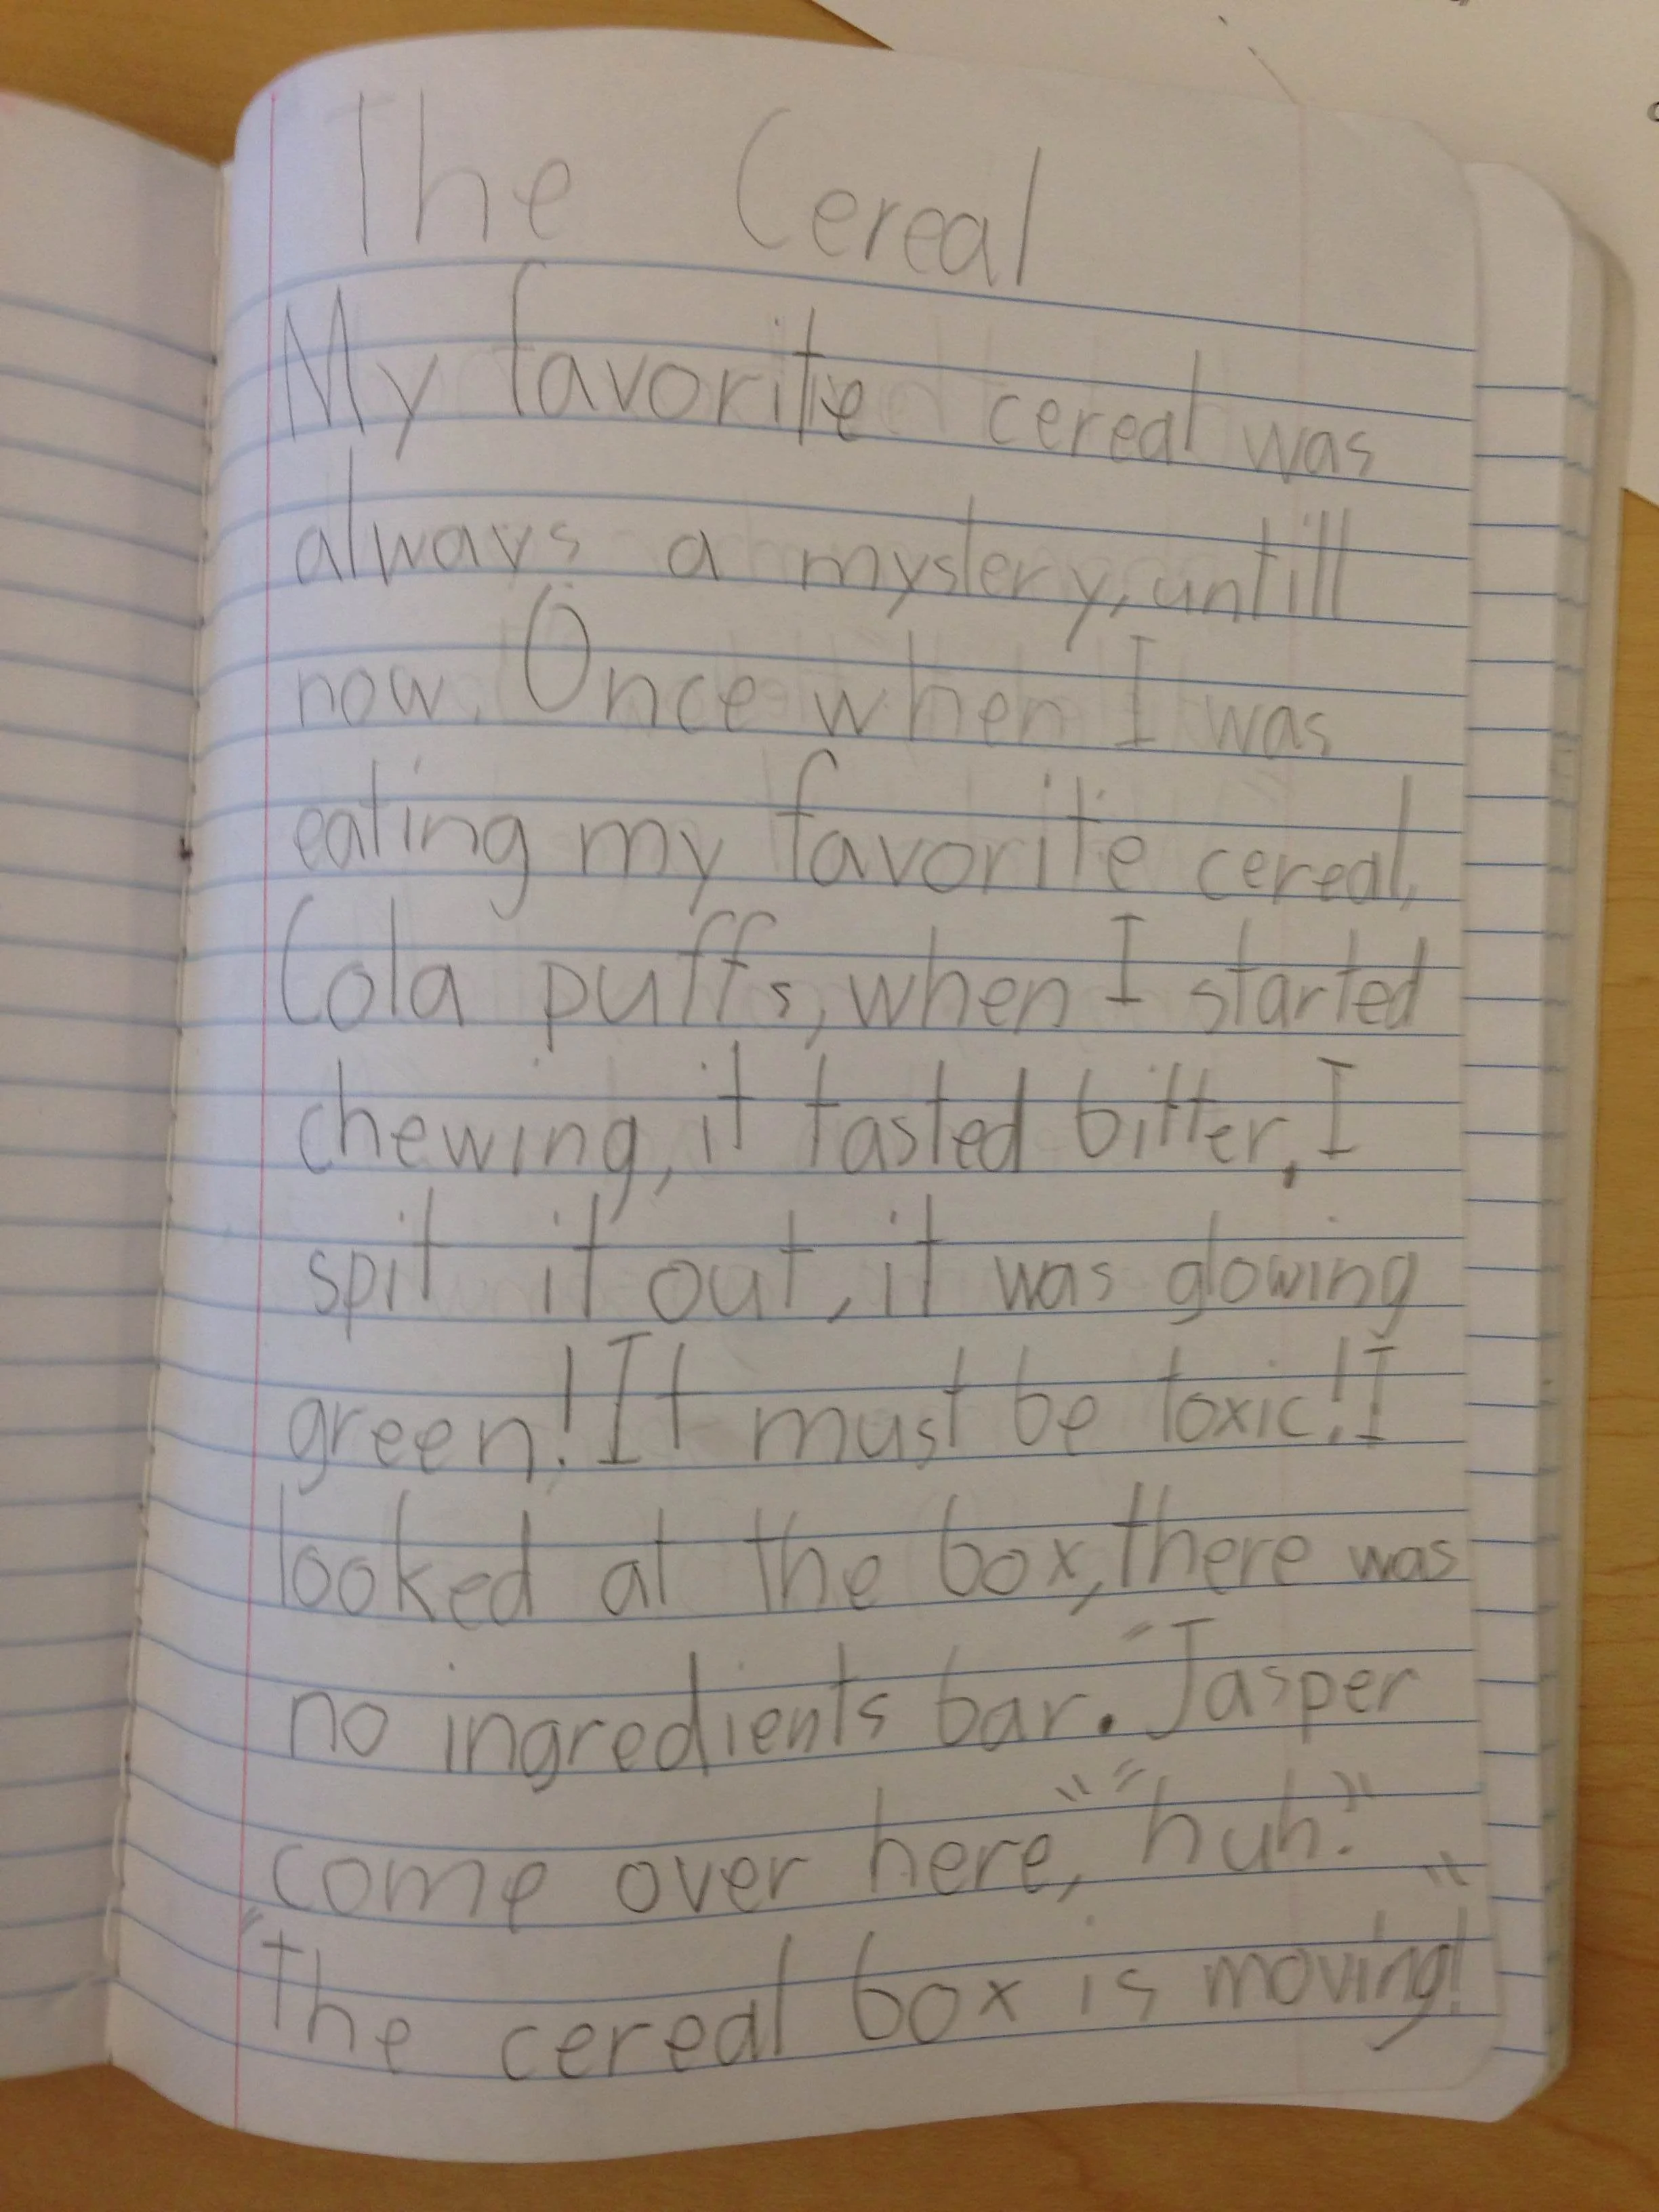 The Cereal
My favorite cereal was
always a mystery, untill
now. Once when I was
eating my favorite cereal,
Cola puffs, when I started
chewing, it tasted bitter. I
spit it out, it was glowing
green! It must be toxic! I
looked at the box, there was
no ingredients bar. "Jasper
come over here," "huh."
"The cereal box is moving!"